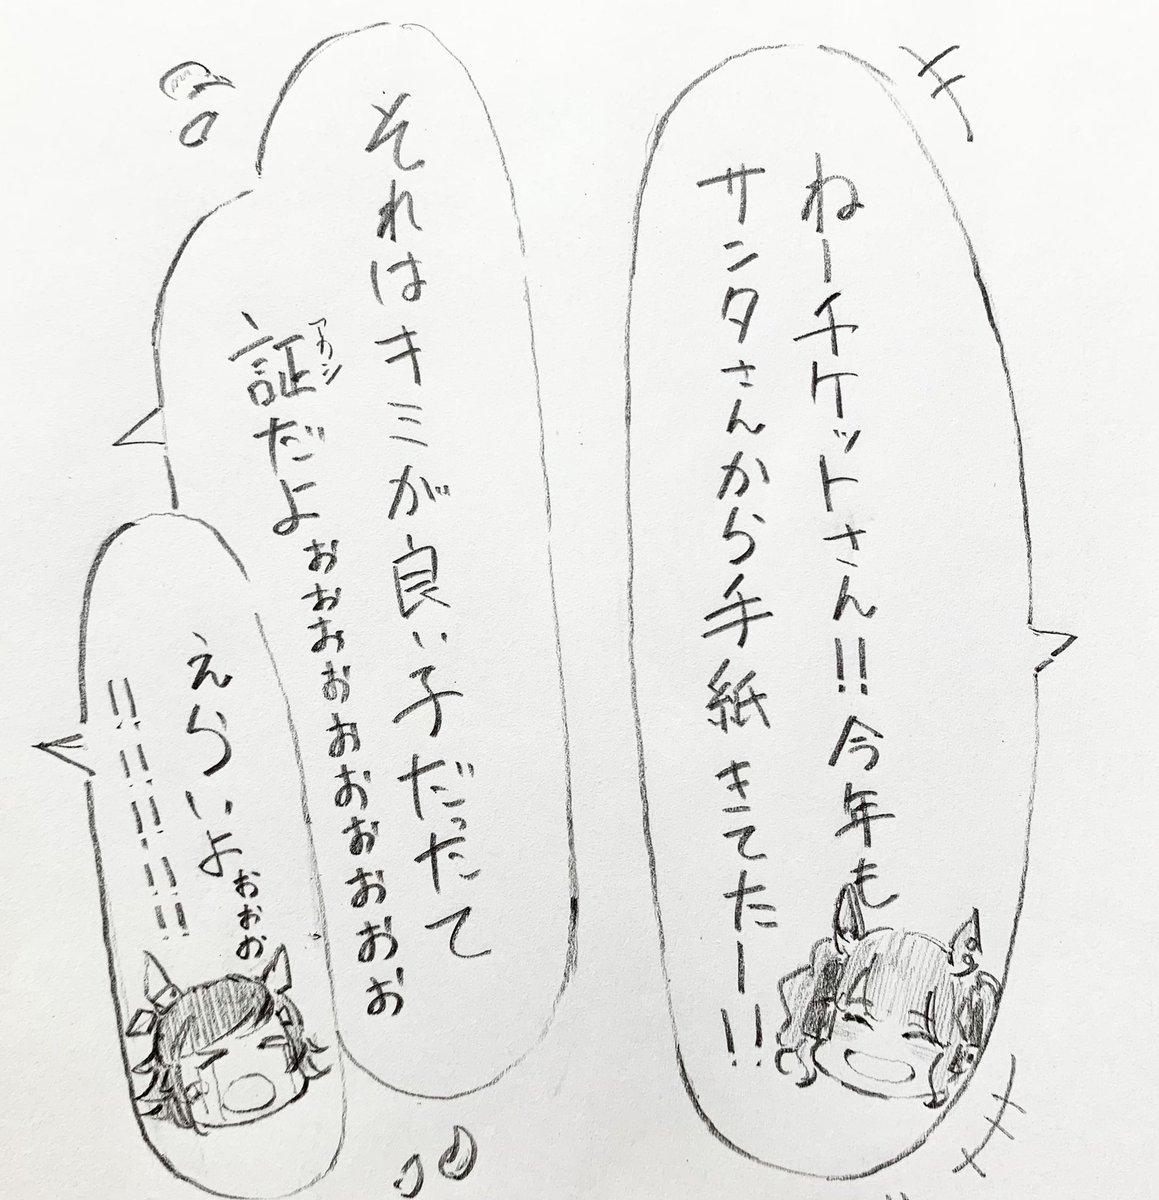 ねーチケットさん!!今年も
サンタさんから手紙きてたー!!
それはキミが良い子だったて
アカシ
証だよぉぉぉぉぉぉぉぉぉぉ
えらいよぉぉぉ
!!!!!!!!!!